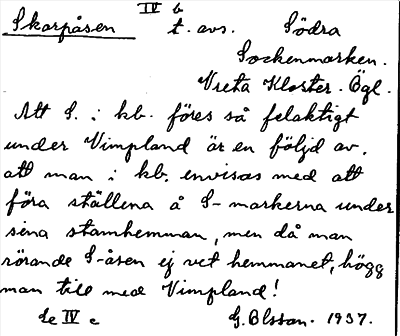 IV b
Skarpåsen t. avs. Södra
Sockenmarken.
Vreta Kloster. Ögl.
Att S. i kb. föres så felaktigt
under Vimpland är en följd av,
att man i kb. envisas med att
föra ställena å S-markerna under
sina stamhemman, men då man
rörande S-åsen ej vet hemmanet, högg
man till med Vimpland!
Se IV c G. Olsson. 1937.